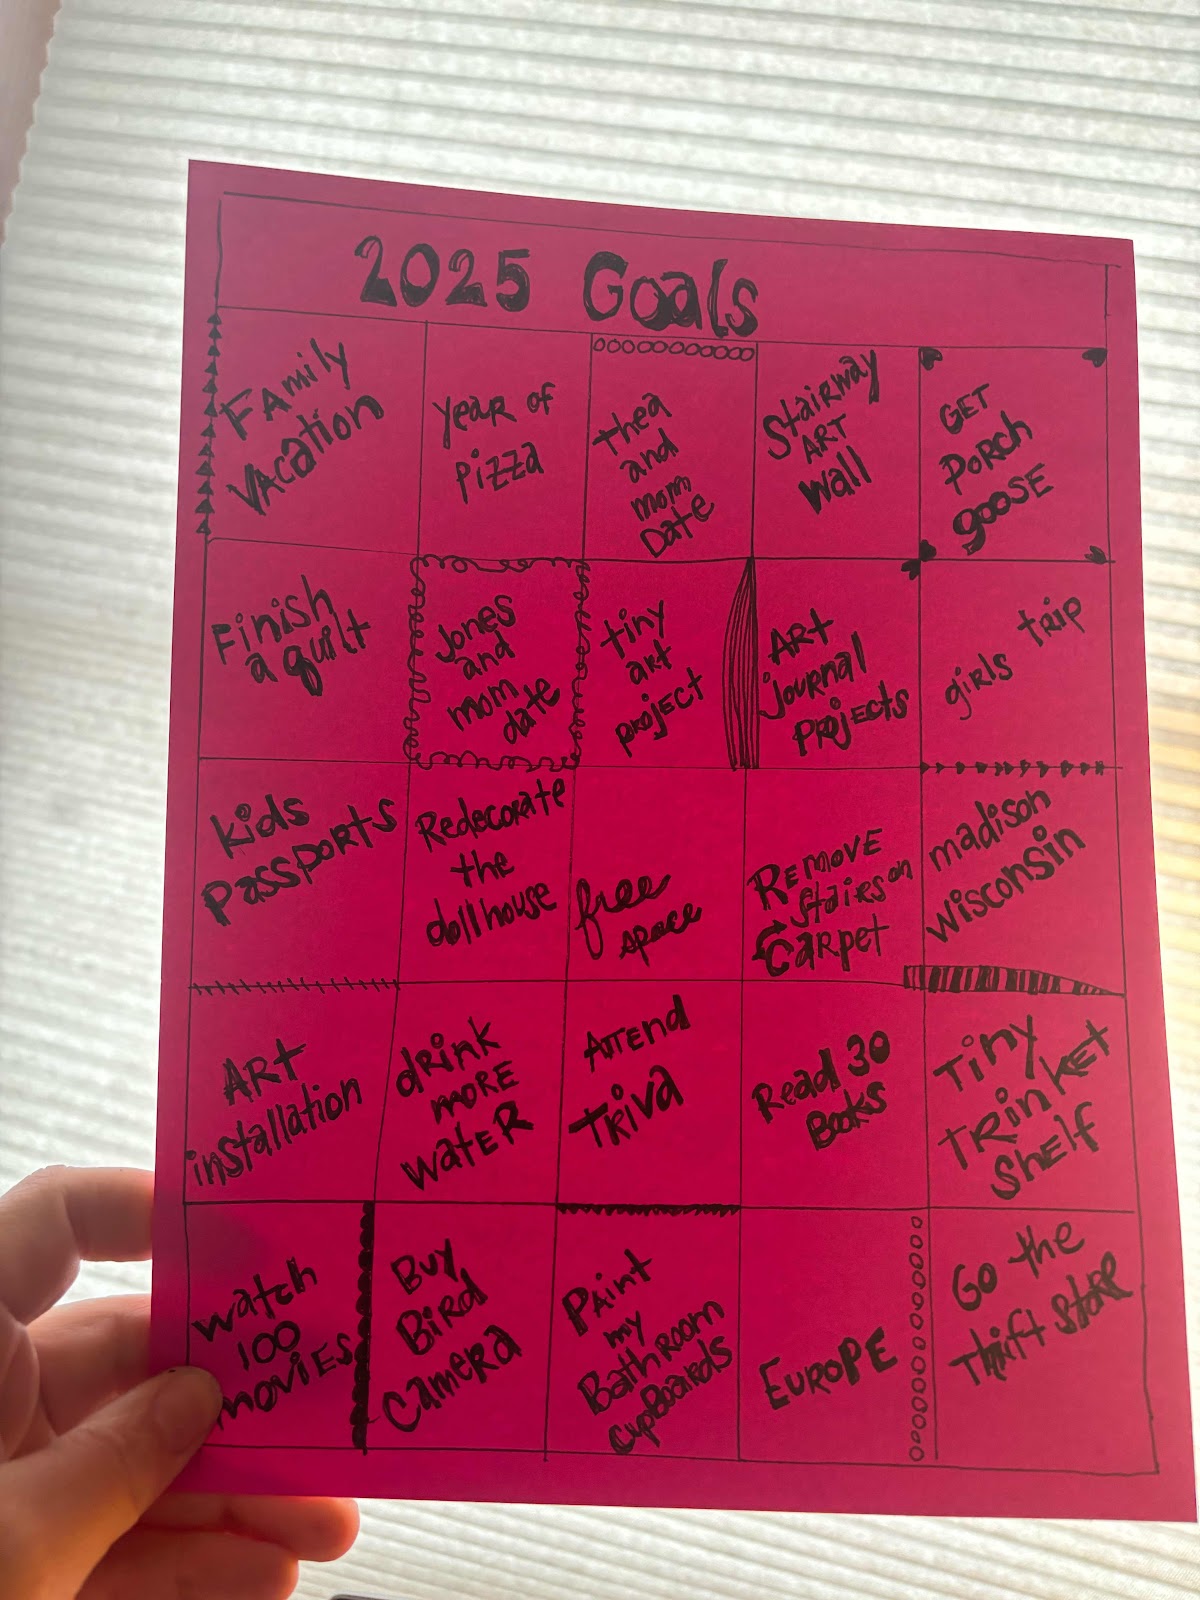 2025 Goals
Family
Vacation
year of
pizza
thea
and
mom
Date
Stairway
ART
Wall
GET
PORCH
goose
Finish
a quilt
Jones
and
mom
date
tiny
art
project
ART
journal
PROjEcts
girls trip
kids
Passports
Redecorate
the
dollhouse
free
space
REmovE
stairs on
Carpet
madison
wisconsin
ART
installation
drink
more
water
Attend
Triva
Read 30
Books
Tiny
TRinket
Shelf
watch
100
movies
Buy
Bird
Camera
Paint
my
Bathroom
cupBoards
EUROPE
Go the
thrift store